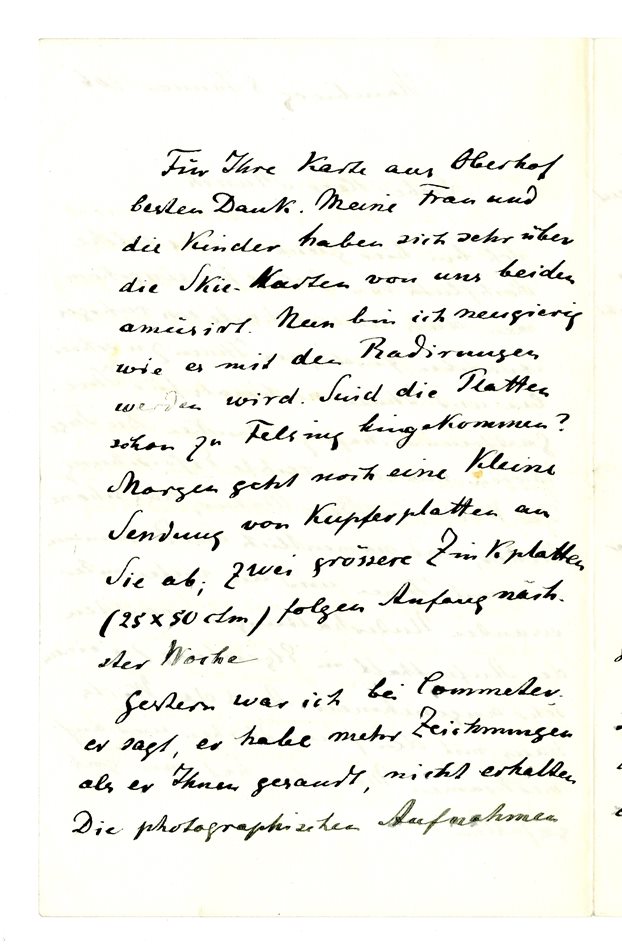 Für Ihre Karte aus Oberhof
besten Dank. Meine Frau und
die Kinder haben sich sehr über
die Skie-Karten von uns beiden
amüsirt. Nun bin ich neugierig
wie es mit den Radirungen
werden wird. Sind die Platten
schon zu Felsing hingekommen?
Morgen geht noch eine kleine
Sendung von Kupferplatten an
Sie ab; zwei grössere Zinkplatten
(25 x 50 ctm) folgen Anfang näch-
ster Woche
Gestern war ich bei Commeter,
er sagt, er habe mehr Zeichnungen
als er Ihnen gesandt, nicht erhalten
Die photographischen Aufnahmen